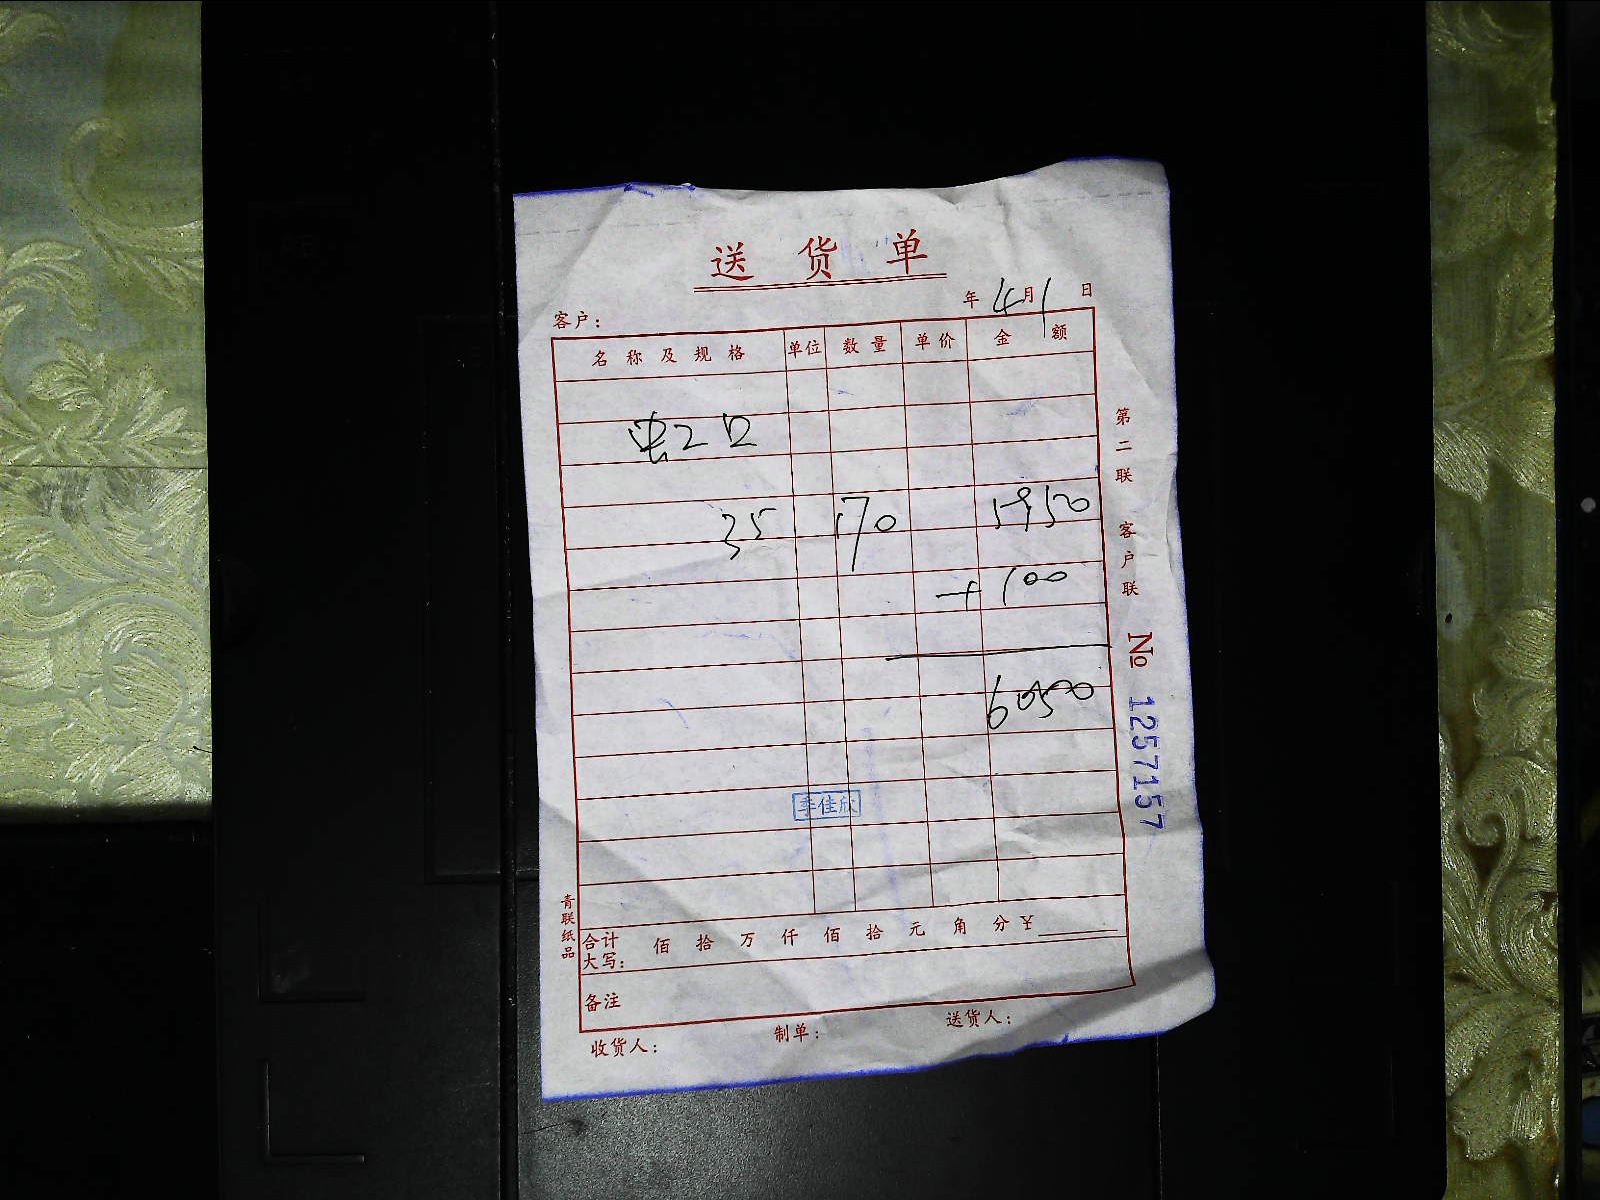 送货单
年 4月1日
客户：
名称及规格 单位 数量 单价 金额
35 170 5950
+ 100
6050
季佳欣
合计大写： 佰 拾 万 仟 佰 拾 元 角 分 ¥
备注
收货人： 制单： 送货人：
第二联 客户联 No 1257157
青联纸品